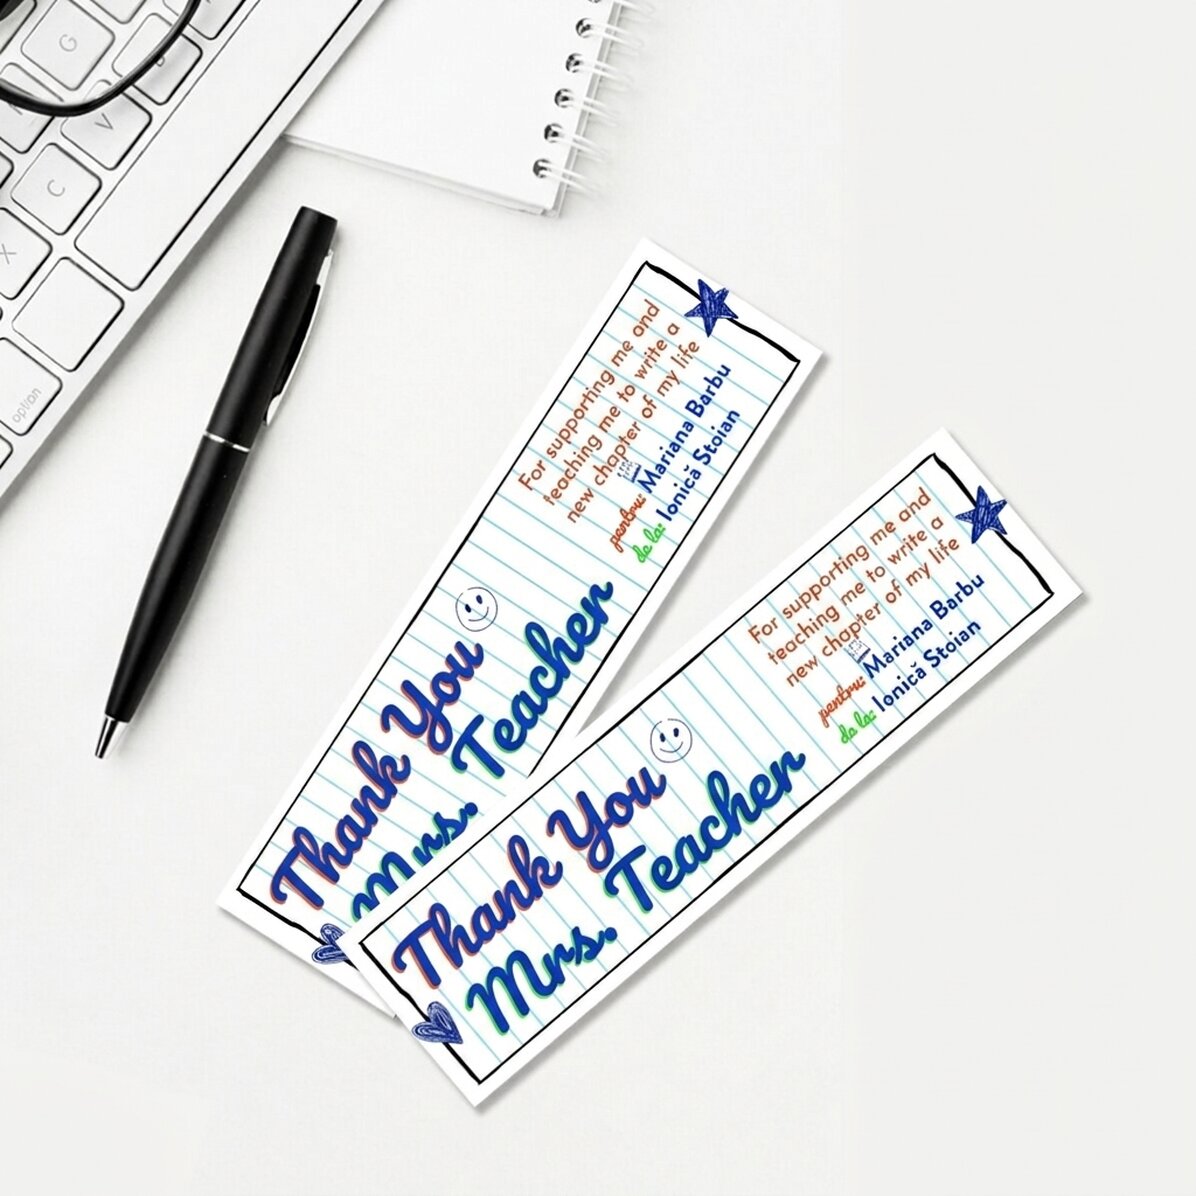 G
V
C
X
option
Thank You
Mrs. Teacher
For supporting me and
teaching me to write a
new chapter of my life
pentru: Mariana Barbu
de la: Ionică Stoian
Thank You
Mrs. Teacher
For supporting me and
teaching me to write a
new chapter of my life
pentru: Mariana Barbu
de la: Ionică Stoian